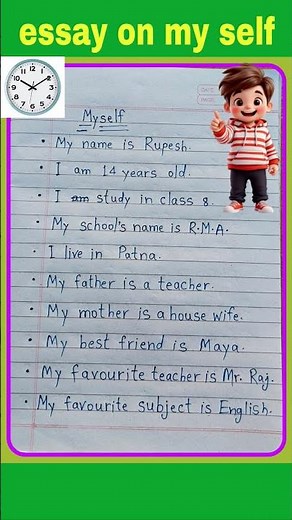 essay on my self
Myself
• My name is Rupesh.
• I am 14 years old.
• I am study in class 8.
• My school's name is R.M.A.
• I live in Patna.
• My father is a teacher.
• My mother is a house wife.
• My best friend is Maya.
• My favourite teacher is Mr. Raj.
• My favourite subject is English.